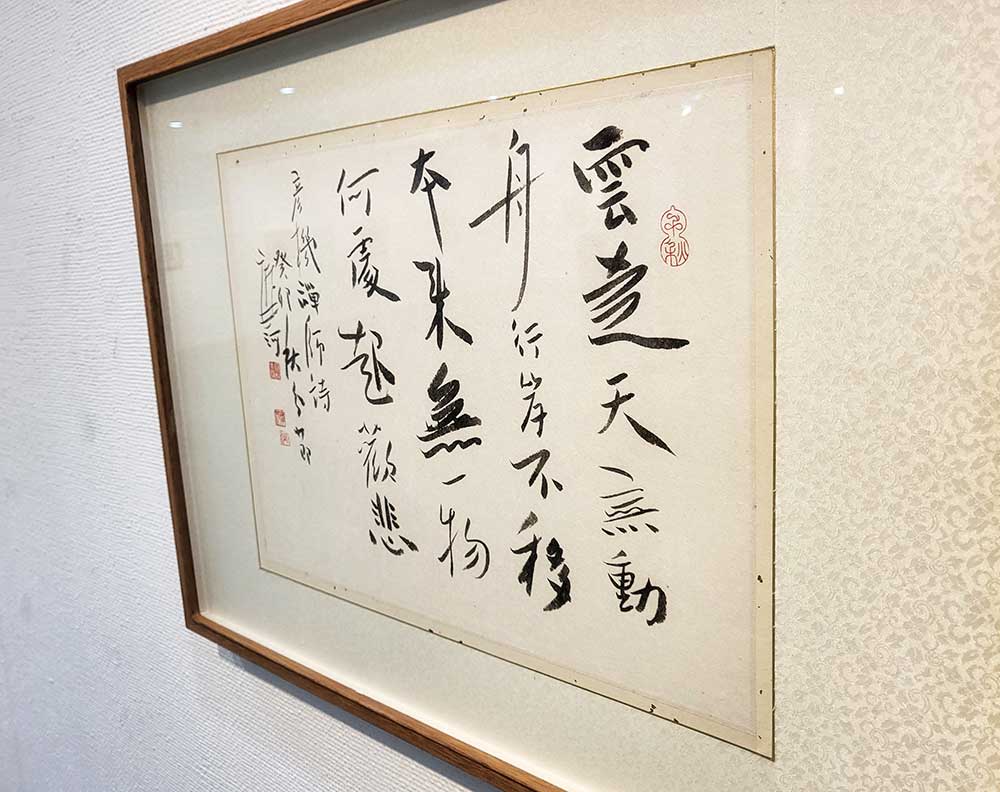 雲走天無動
舟行岸不移
本來無一物
何處起歡悲
彥機禪師詩
癸卯秋